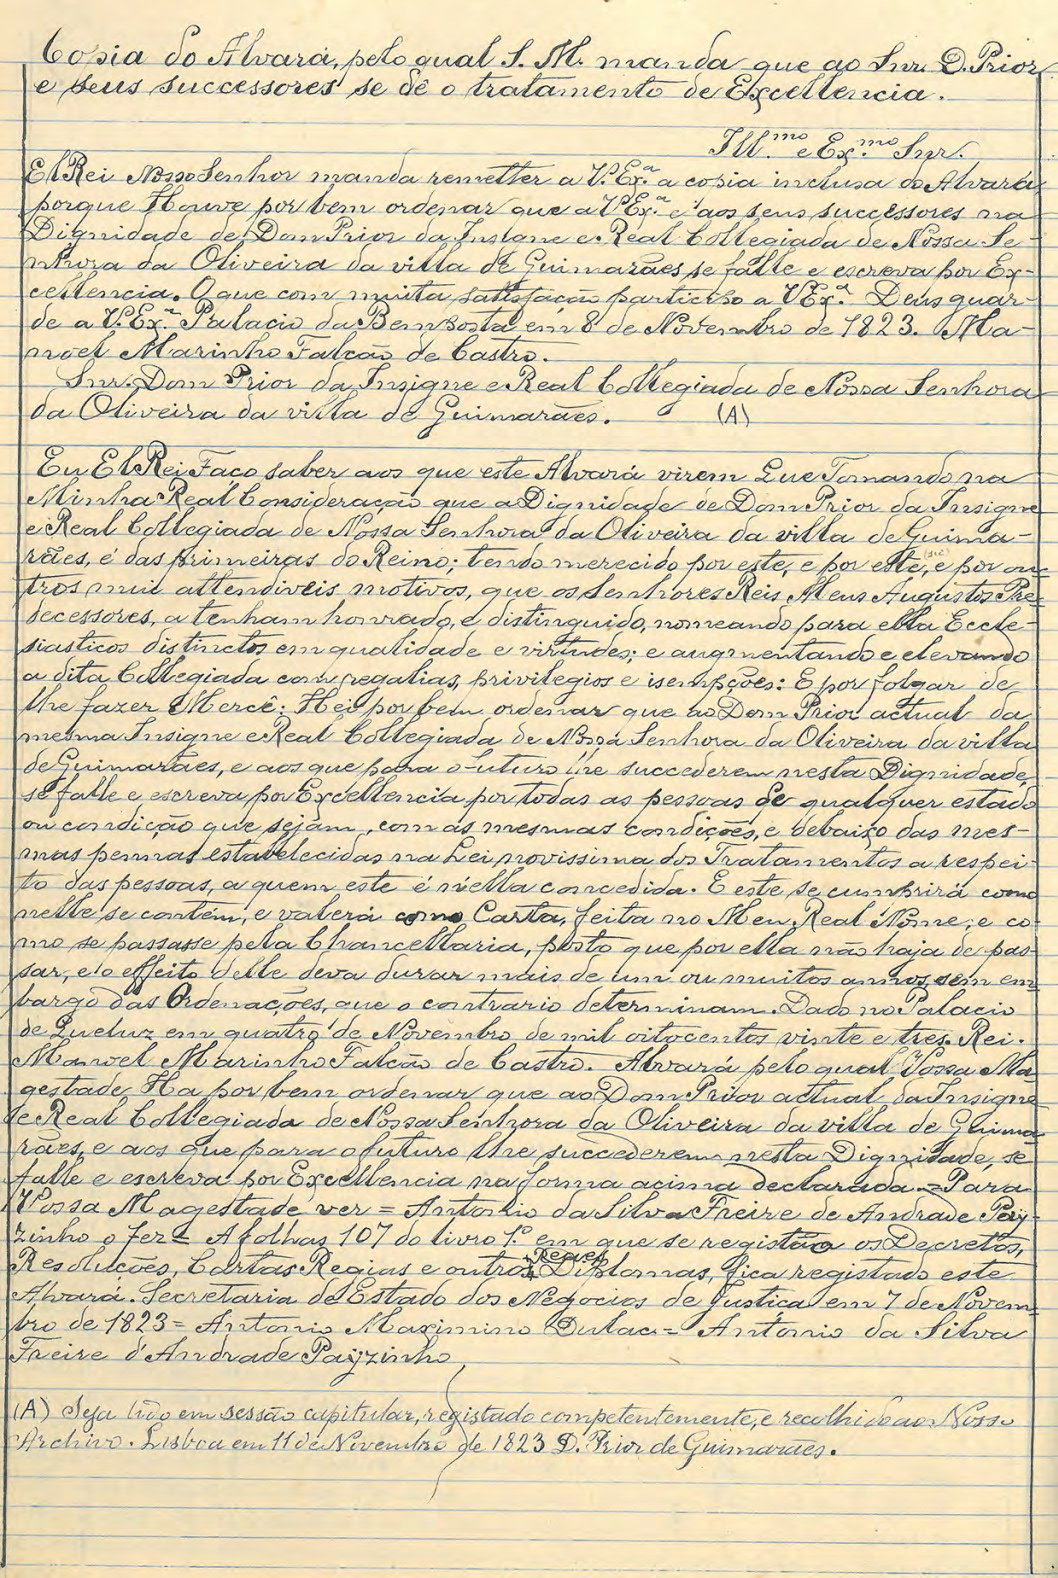 Copia do Alvará, pelo qual S. M. manda que ao Snr. D. Prior
e seus successores se dê o tratamento de Excellencia.
Ill.mo e Ex.mo Snr.
El Rei Nosso Senhor manda remetter a V. Ex.a a copia inclusa do Alvará
porque Houve por bem ordenar que a V. Ex.a e aos seus successores na
Dignidade de Dom Prior da Insigne e Real Collegiada de Nossa Se-
nhora da Oliveira da villa de Guimarães, se falle e escreva por Ex-
cellencia. O que com muita satisfação participo a V. Ex.a Deus guar-
de a V. Ex.a Palacio da Bemposta em 8 de Novembro de 1823. Ma-
noel Marinho Falcão de Castro.
Snr. Dom Prior da Insigne e Real Collegiada de Nossa Senhora
da Oliveira da villa de Guimarães. (A)
Eu El Rei Faço saber aos que este Alvará virem Que Tomando na
Minha Real Consideração que a Dignidade de Dom Prior da Insigne
e Real Collegiada de Nossa Senhora da Oliveira da villa de Guima-
rães, é das primeiras do Reino; tendo merecido por este, e por este, (sic) e por ou-
tros mui attendiveis motivos, que os Senhores Reis Meus Augustos Pre-
decessores, a tenham honrado, e distinguido, nomeando para ella Eccle-
siasticos distinctos em qualidade e virtudes; e augmentando e elevando
a dita Collegiada com regalias, privilegios e isempções: E por folgar de
lhe fazer Mercê; Hei por bem ordenar que ao Dom Prior actual da
mesma Insigne e Real Collegiada de Nossa Senhora da Oliveira da villa
de Guimarães, e aos que para o futuro lhe succederem nesta Dignidade,
se falle e escreva por Excellencia por todas as pessoas de qualquer estado
ou condição que sejam, com as mesmas condições, e debaixo das mes-
mas pennas estabelecidas na Lei novissima dos Tratamentos a respei-
to das pessoas, a quem este é n'ella concedida. E este se cumprirá como
nelle se contém, e valerá como Carta, feita no Meu Real Nome, e co-
mo se passasse pela Chancellaria, posto que por ella não haja de pas-
sar, e o effeito delle deva durar mais de um ou muitos annos, sem em-
bargo das Ordenações, que o contrario determinam. Dado no Palacio
de Queluz em quatro de Novembro de mil oitocentos vinte e tres. Rei.
Manoel Marinho Falcão de Castro. Alvará pelo qual Vossa Ma-
gestade Ha por bem ordenar que ao Dom Prior actual da Insigne
e Real Collegiada de Nossa Senhora da Oliveira da villa de Guima-
rães, e aos que para o futuro lhe succederem nesta Dignidade, se
falle e escreva por Excellencia na forma acima declarada = Para
Vossa Magestade ver = Antonio da Silva Freire de Andrade Pay-
zinho o fez = A folhas 107 do livro 1.º em que se registão os Decretos,
Resoluções, Cartas Regias e outros Regios Diplomas, fica registado este
Alvará. Secretaria de Estado dos Negocios de Justiça em 7 de Novem-
bro de 1823 = Antonio Maximino Dulac = Antonio da Silva
Freire d'Andrade Payzinho
(A) Seja lido em sessão capitular, registado competentemente, e recolhido ao Nosso
Archivo. Lisboa em 11 de Novembro de 1823 D. Prior de Guimarães.